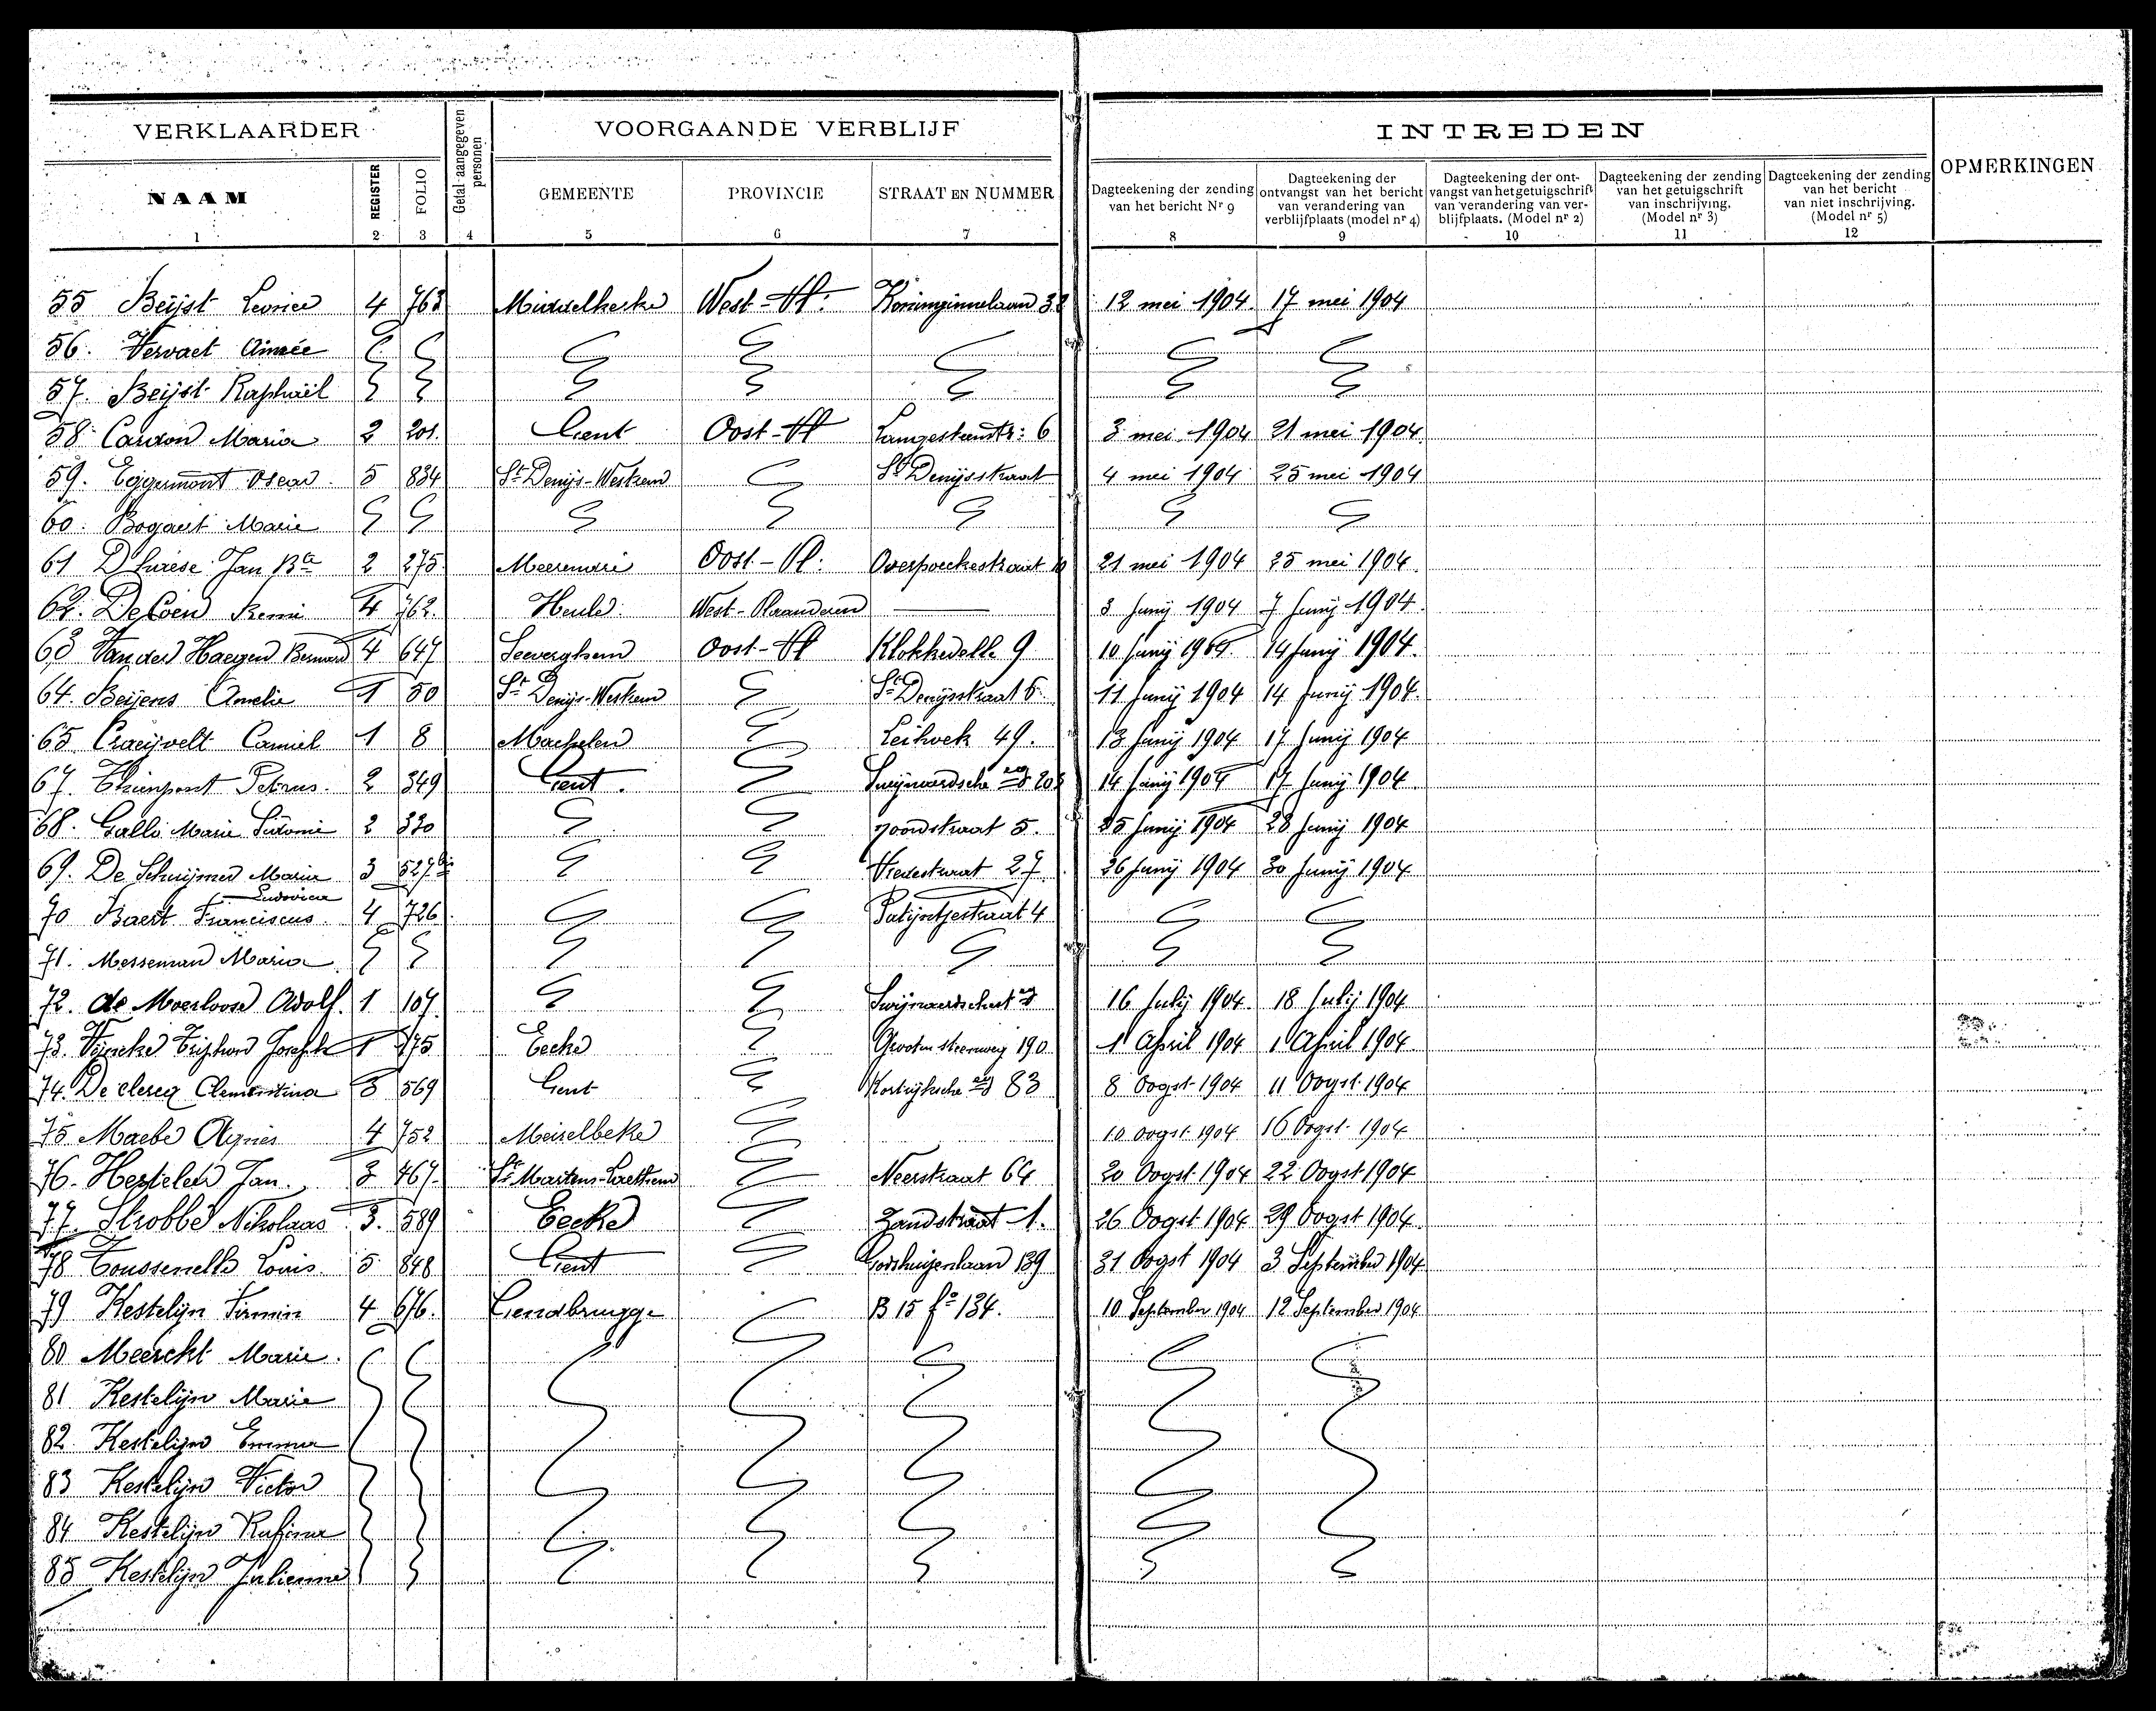 VERKLAARDER Getal aangegeven personen VOORGAANDE VERBLIJF INTREDEN OPMERKINGEN
NAAM REGISTER FOLIO GEMEENTE PROVINCIE STRAAT EN NUMMER Dagteekening der zending van het bericht Nr 9 Dagteekening der ontvangst van het bericht van verandering van verblijfplaats (model nr 4) Dagteekening der ontvangst van het getuigschrift van verandering van verblijfplaats. (Model nr 2) Dagteekening der zending van het getuigschrift van inschrijving. (Model nr 3) Dagteekening der zending van het bericht van niet inschrijving. (Model nr 5)
1 2 3 4 5 6 7 8 9 10 11 12
55 Beijst Leonice 4 763 Middelkerke West-Vl. Koninginnelaan 38 12 mei 1904 17 mei 1904
56. Vervaet Aimée
57. Beijst Raphaël
58. Cardon Maria 2 201. Gent Oost-Vl Langesteenstr: 6 3 mei 1904 21 mei 1904
59. Eggermont Oscar 5 834 St Denijs-Westrem St Denijsstraat 4 mei 1904 25 mei 1904
60. Bogaert Marie
61 Jan Bte 2 275 Meerendré Oost-Vl. Overpoeckestraat 21 mei 1904 25 mei 1904
62. De Coen Remi 4 762. Heule. West-Vlaanderen 3 Junij 1904 7 Junij 1904
63 Van der Haegen Bernard 4 647 Seeverghem Oost-Vl Klokkedelle 9 10 Junij 1904 14 Junij 1904.
64. Beijens Amelie 1 50 St Denijs-Westrem St Denijsstraat 6 11 Junij 1904 14 Junij 1904
65 Craeijvelt Camiel 1 8 Machelen Leihoek 49. 13 Junij 1904 17 Junij 1904
67. Thienpont Petrus. 2 349 Gent. Swijnaerdsche 14 Junij 1904 17 Junij 1904
68. Galle Marie Sidonie 2 330 Noordstraat 5. 25 Junij 1904 28 Junij 1904
69. De Schuijmer Marie Ludovica 3 527bis Vredestraat 27 26 Junij 1904 30 Junij 1904
70 Baert Franciscus. 4 726 Patijntjestraat 4
71. Messeman Maria
72. de Moerloose Adolf. 1 107 16 Julij 1904 18 Julij 1904
73. Vijncke Triphon Joseph 1 175 Eecke Grooten steenweg 190 1 April 1904 1 April 1904
74. De clercq Clementina 3 569 Gent Kortrijksche 83 8 Oogst 1904 11 Oogst 1904
75 Maebe Agnès 4 752 Meirelbeke 10 oogst 1904 16 Oogst 1904
76. Hesteleer Jan. 3 467. St Martens-Laethem Neerstraat 64 20 Oogst 1904 22 Oogst 1904
77. Strobbe Nikolaas 3. 589 Eecke Zandstraat 1. 26 Oogst 1904 29 Oogst 1904
78 Toussenelle Louis. 5 848 Gent Godshuizenlaan 139 31 Oogst 1904 3 September 1904
79 Kestelijn Firmin 4 676. Gendbrugge B 15 fo 134. 10 September 1904 12 September 1904
80 Meerckt Marie.
81 Kestelijn Marie
82. Kestelijn Emma
83 Kestelijn Victor
84 Kestelijn Rufina
85 Kestelijn Julienne